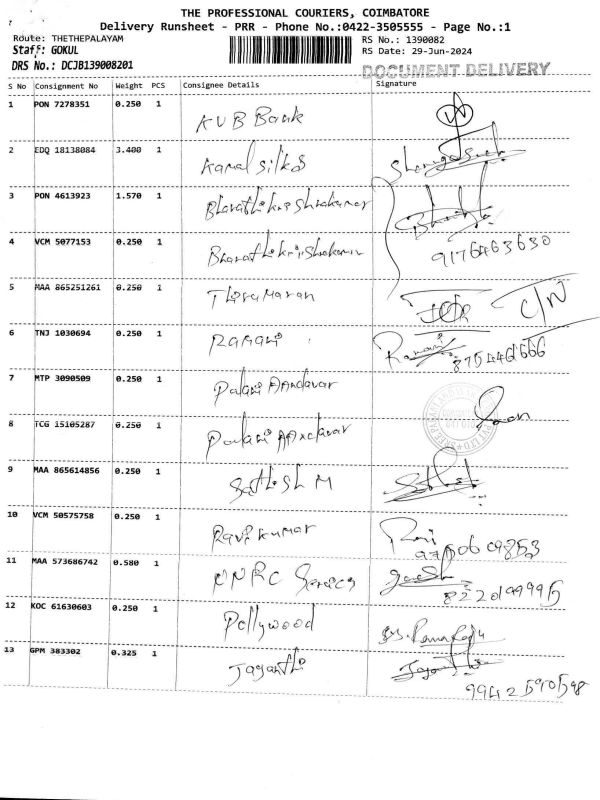 THE PROFESSIONAL COURIERS, COIMBATORE
Delivery Runsheet - PRR - Phone No.:0422-3505555 - Page No.:1
Route: THETHEPALAYAM RS No.: 1390082
Staff: GOKUL RS Date: 29-Jun-2024
DRS No.: DCJB139008201
DOCUMENT DELIVERY
S No Consignment No Weight PCS Consignee Details Signature
1 PON 7278351 0.250 1 KVB Bank
2 EDQ 18138084 3.400 1 Kamal Silks
3 PON 4613923 1.570 1 Bharathikrishnakumar
4 VCM 5077153 0.250 1 Bharathikrishnakumar 9176463630
5 MAA 865251261 0.250 1 Thirumaran C/N
6 TNJ 1030694 0.250 1 Ramani Ramani
875446666
7 MTP 3090509 0.250 1 Palani AAndavar
8 TCG 15105287 0.250 1 Palani AAndavar
9 MAA 865614856 0.250 1 Sathish M
10 VCM 50575758 0.250 1 Ravikumar Ravi
9750609853
11 MAA 573686742 0.580 1 MNRC
8220199995
12 KOC 61630603 0.250 1 Pollywood
13 GPM 383302 0.325 1 Jayanthi
9942590598